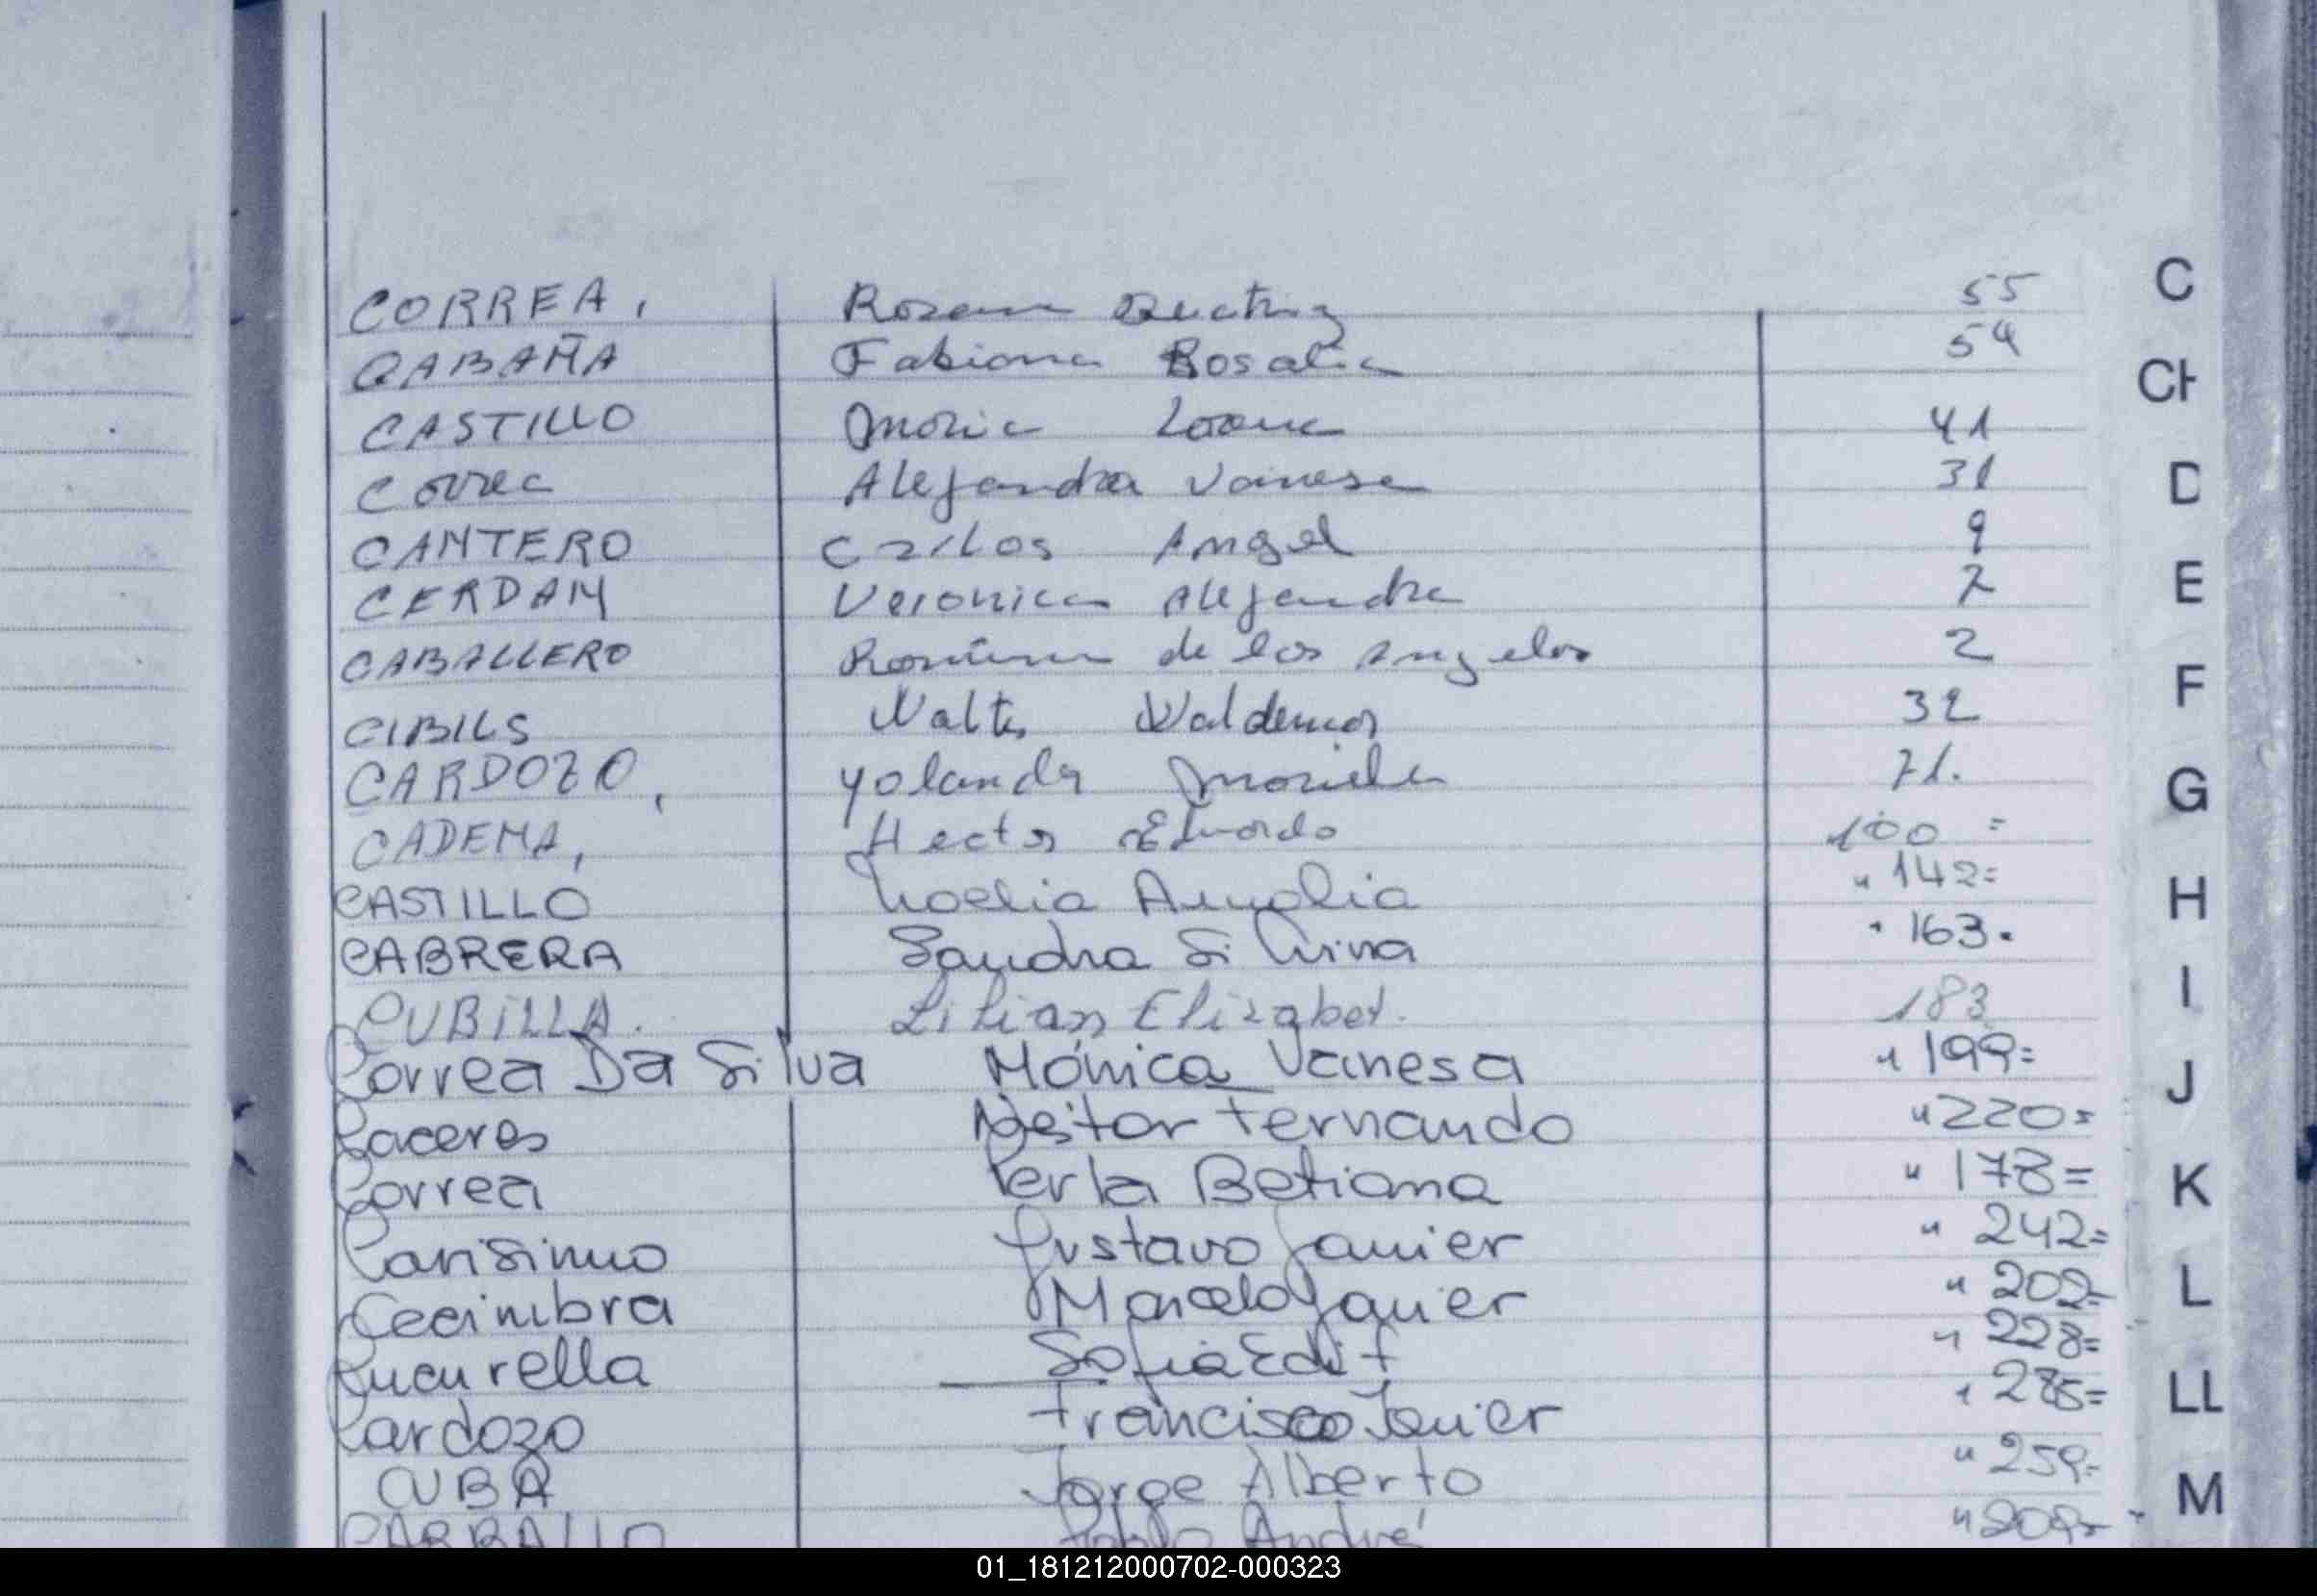 CORREA, Rosana Beatriz 55 C
CABAÑA Fabiana Rosalia 54
CASTILLO Maria Lorena 41 CH
Correa Alejandra Vanesa 31 D
CANTERO Carlos Angel 9
CERDAN Veronica Alejandra 7 E
CABALLERO Romina de los Angeles 2
CIBILS Walter Waldemar 32 F
CARDOZO, Yolanda Mariela 71. G
CADENA, Hector Eduardo 100 =
CASTILLO Noelia Analia " 142= H
CABRERA Sandra Silvina " 163.
CUBILLA. Lilian Elizabet. 183 I
Correa Da Silva Mónica Vanesa " 199= J
Caceres Nestor Fernando " 220=
Correa Perla Betiana " 178= K
Carisimo Gustavo Javier " 242=
Cecimbra Marcelo Javier " 202= L
Cucurella Sofia Edit " 228=
Cardozo Francisco Javier " 285= LL
CUBA Jorge Alberto " 259-
CARBALLO Pablo André " 209= M
01_181212000702-000323